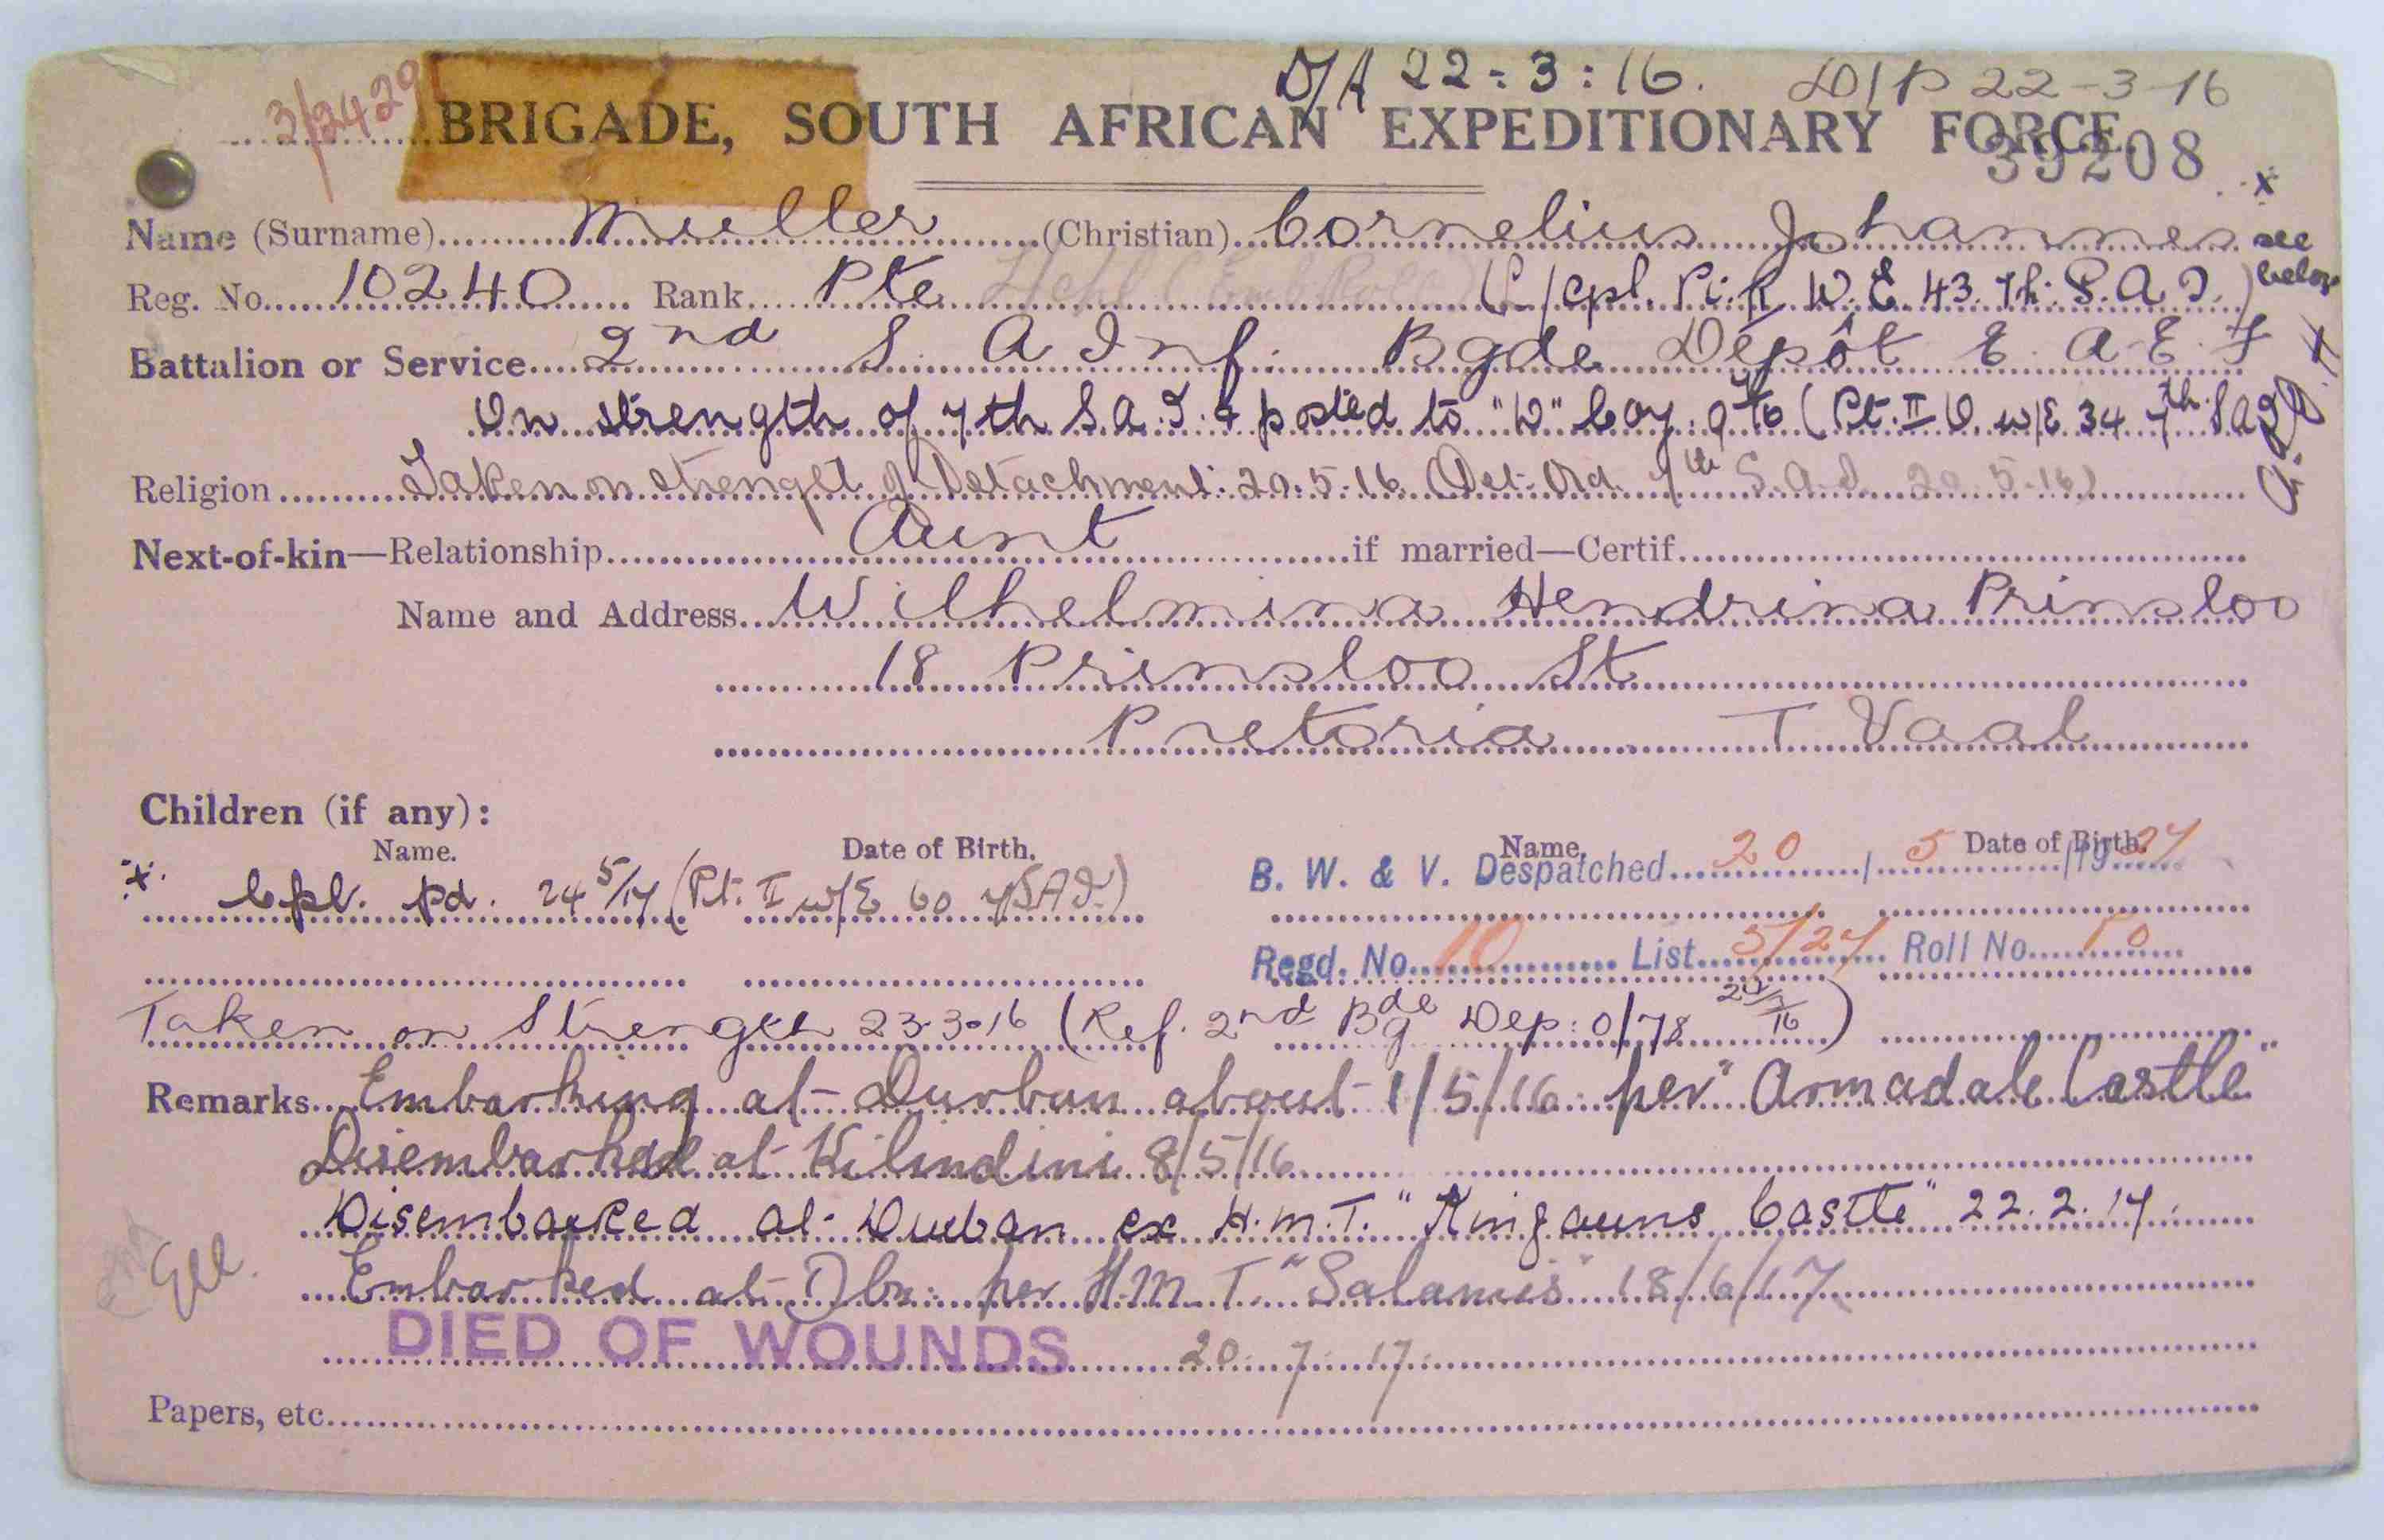 3/3429
D/A 22-3:16. D/P 22-3-16
BRIGADE, SOUTH AFRICAN EXPEDITIONARY FORCE.
39208
Name (Surname) Muller (Christian) Cornelius Johannes x see below
Reg. No. 10240 Rank Pte (L/Cpl. Pt. II W.E. 43. 7th. S.A.I.)
Battalion or Service 2nd S. A Inf. Bgde Depôt E. A. E. F
On strength of 7th S.A.I. & posted to "D" Coy. (Pt. II O. w/E 34 7th S.A.I.)
Religion Taken on strength of Detachment: 20.5.16 (Det. Ord. 7th S.A.I. 20.5.16)
Next-of-kin—Relationship Aunt if married—Certif.
Name and Address Wilhelmina Hendrina Prinsloo
18 Prinsloo St
Pretoria T. Vaal
Children (if any):
Name. Date of Birth. Name. Date of Birth.
B. W. & V. Despatched 20 / 5 /19 27
x Cpl. pd. 24 5/17 (Pt. II w/E 60 7SAI.)
Regd. No. 10 List 5/27 Roll No. 10
Taken on Strength 23.3.16 (Ref. 2nd Bgde Dep: O/78)
Remarks Embarking at Durban about 1/5/16 per "Armadale Castle"
Disembarked at Kilindini 8/5/16
Disembarked at Durban ex H.M.T. "Kinfauns Castle" 22.2.17.
Embarked at Dbn: per H.M.T. "Salamis" 18/6/17
DIED OF WOUNDS 20.7.17.
Papers, etc.